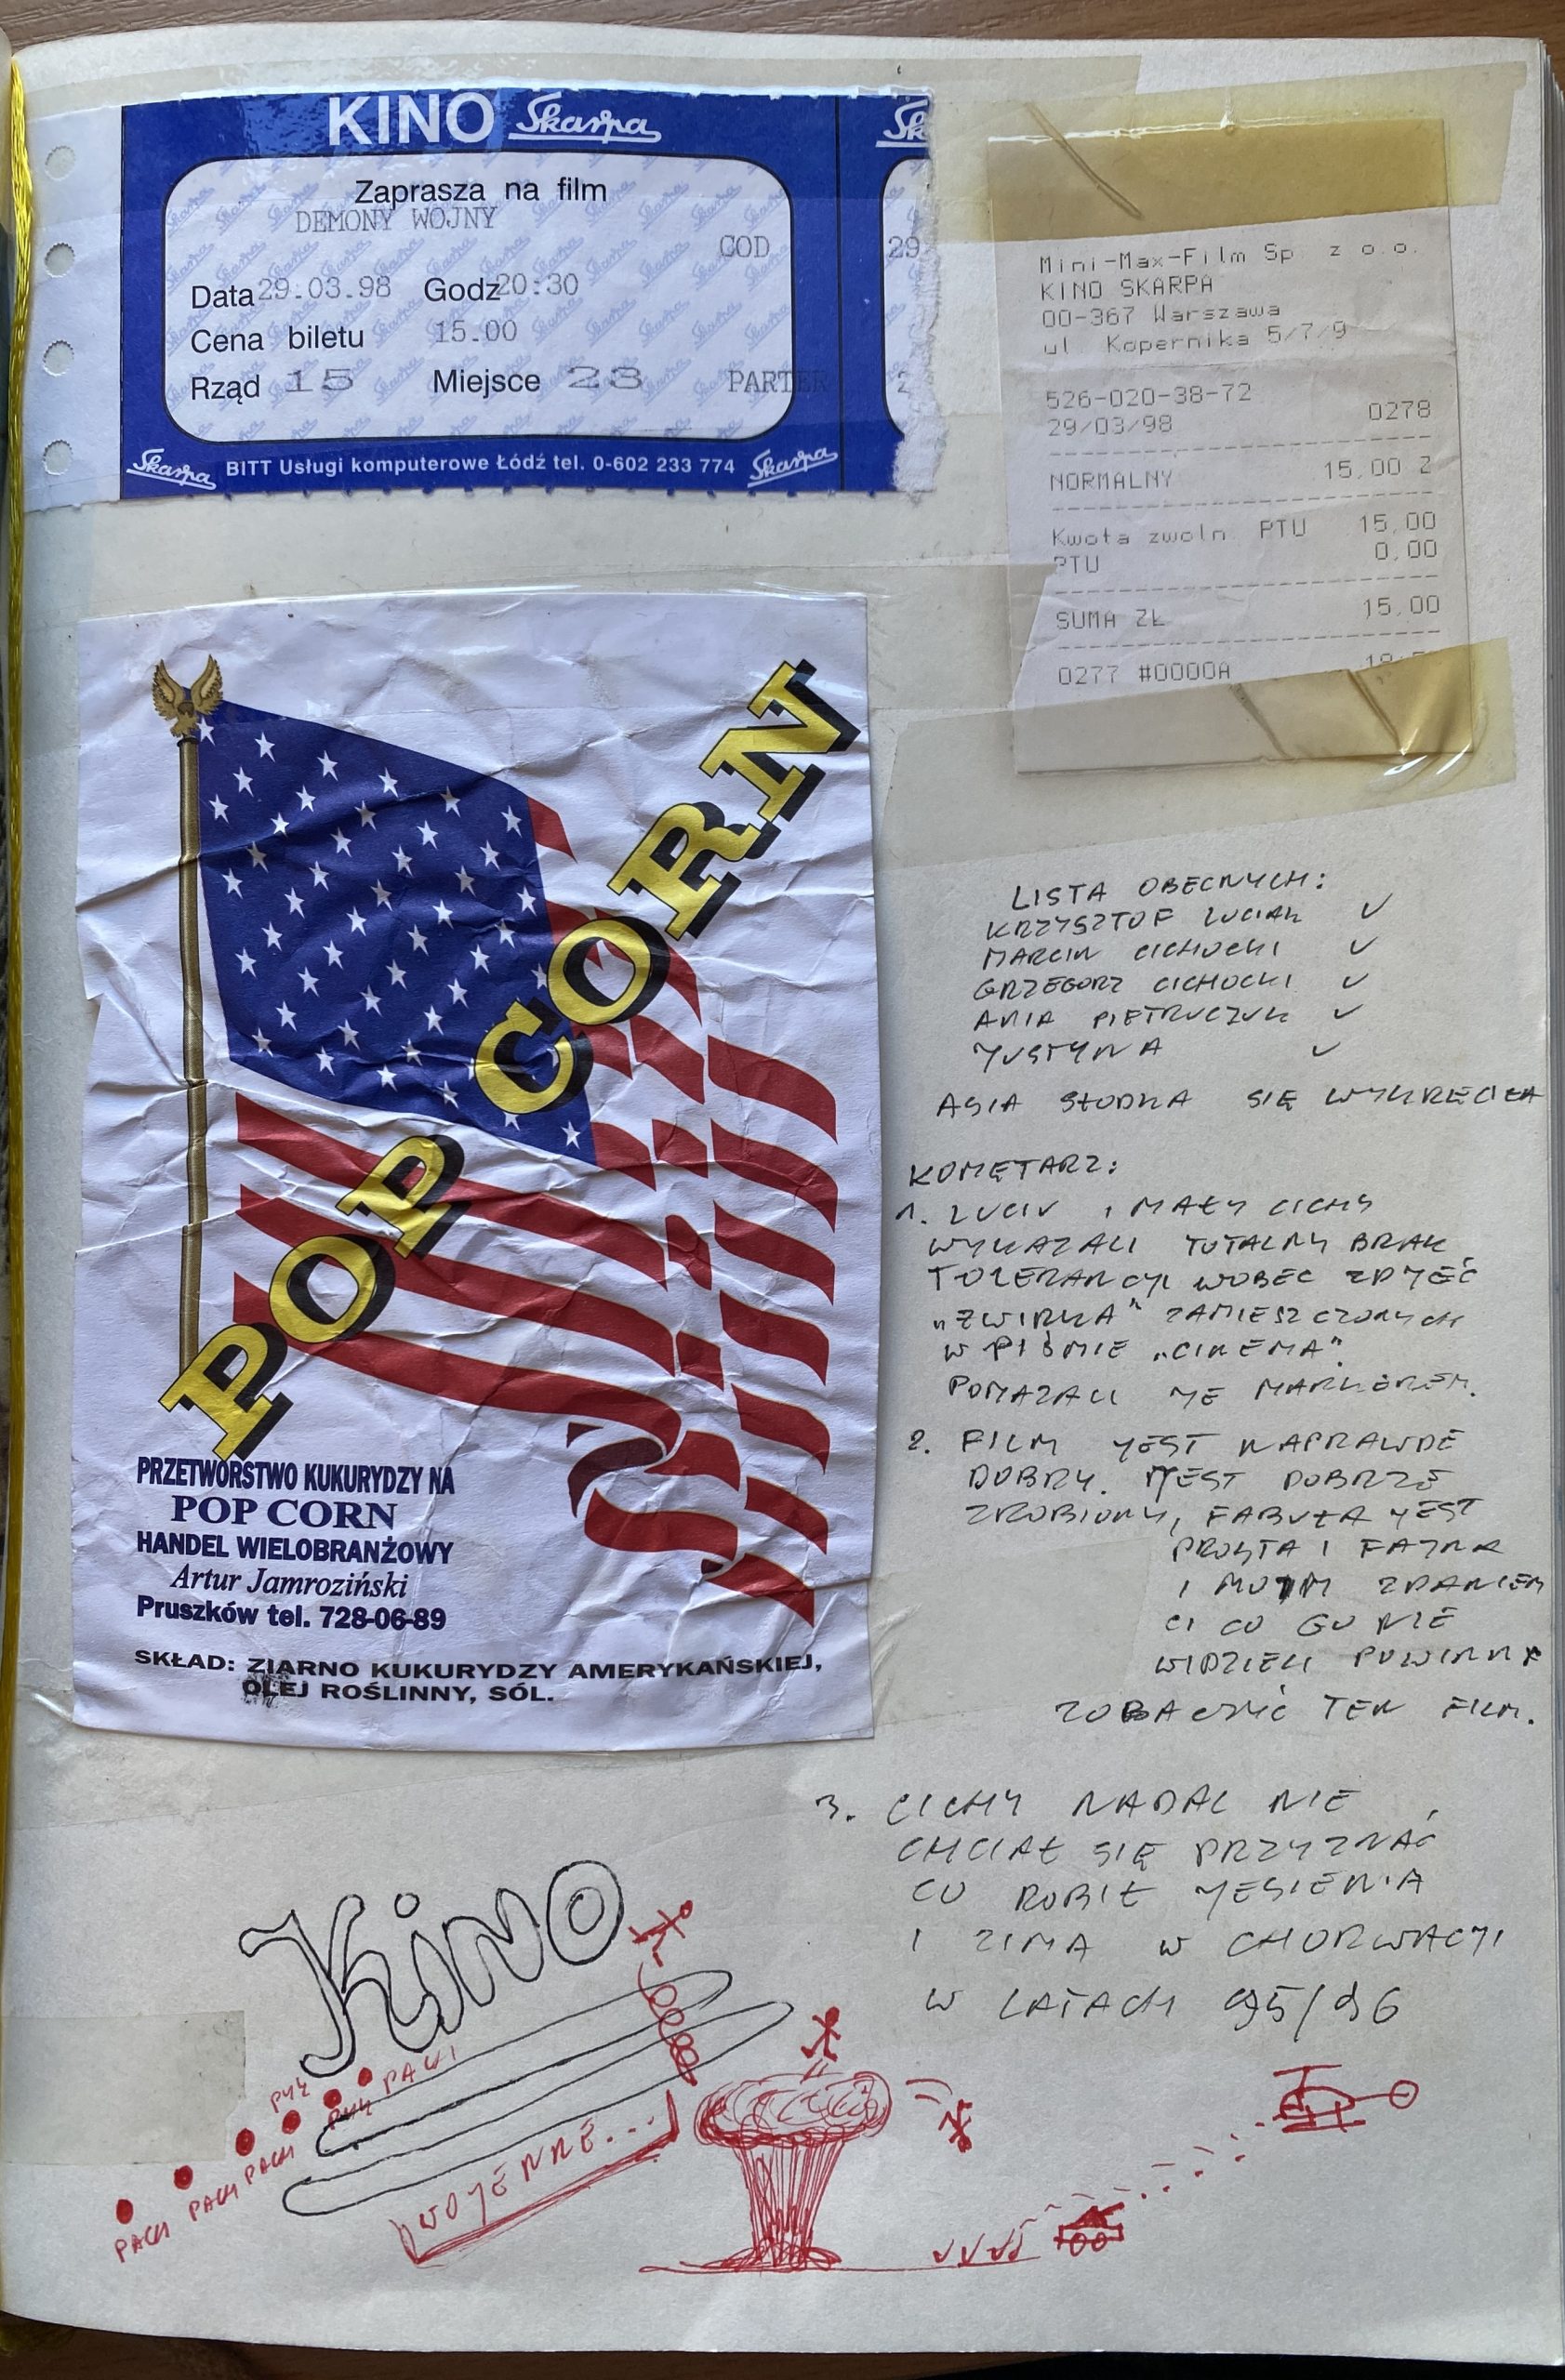 KINO Skarpa
Sk
Zaprasza na film
DEMONY WOJNY
COD
29
Data 29.03.98 Godz 20:30
Cena biletu 15.00
Rząd 15 Miejsce 23 PARTER
2
Skarpa BITT Usługi komputerowe Łódź tel. 0-602 233 774 Skarpa
Mini-Max-Film Sp. z o.o.
KINO SKARPA
00-367 Warszawa
ul Kopernika 5/7/9
526-020-38-72
29/03/98 0278
NORMALNY 15,00 Z
Kwota zwoln. PTU 15,00
PTU 0,00
SUMA ZŁ 15,00
0277 #0000A
POP CORN
PRZETWÓRSTWO KUKURYDZY NA
POP CORN
HANDEL WIELOBRANŻOWY
Artur Jamroziński
Pruszków tel. 728-06-89
SKŁAD: ZIARNO KUKURYDZY AMERYKAŃSKIEJ,
OLEJ ROŚLINNY, SÓL.
LISTA OBECNYCH:
KRZYSZTOF LUCIAK ✓
MARCIN CICHOCKI ✓
GRZEGORZ CICHOCKI ✓
ANIA PIETRUCZUK ✓
JUSTYNA ✓
ASIA SŁODKA SIĘ WYKRĘCIŁA
KOMĘTARZ:
1. LUCIU I MAŁY CICHY
WYKAZALI TOTALNY BRAK
TOLERANCJI WOBEC ZDJĘĆ
„ZWIRKA" ZAMIESZCZONYCH
W PIŚMIE „CINEMA".
POMAZALI JE MARKEREM.
2. FILM JEST NAPRAWDĘ
DOBRY. JEST DOBRZE
ZROBIONY, FABUŁA JEST
PROSTA I FAJNA
I MOIM ZDANIEM
CI CO GO NIE
WIDZIELI POWINNI
ZOBACZYĆ TEN FILM.
3. CICHY NADAL NIE
CHCIAŁ SIĘ PRZYZNAĆ
CO ROBIŁ JESIENIĄ
I ZIMĄ W CHORWACJI
W LATACH 95/96
Kino
WOJENNE...
PACH PACH PACH